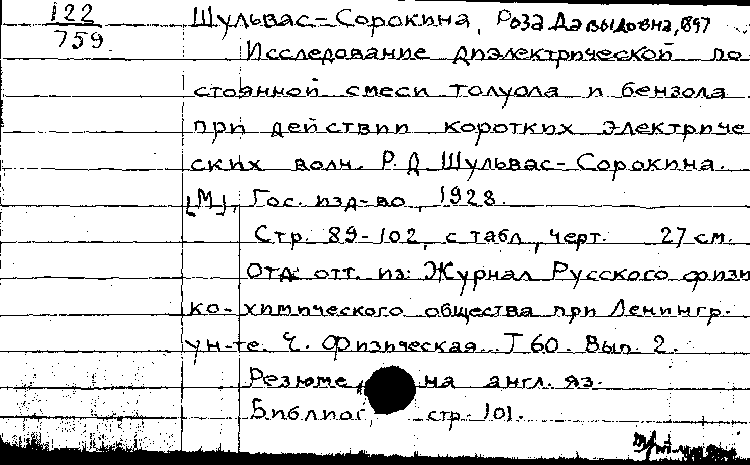 122
759
Шульвас-Сорокина, Роза Давыдовна, 897
Исследование диэлектрической по
стоянной смеси толуола и бензола
при действии коротких электриче
ских волн. Р. Д Шульвас-Сорокина.
[М], Гос. изд-во, 1928.
Стр. 89-102, с табл, черт. 27 см.
Отд. отт. из: Журнал Русского физи
ко-химического общества при Ленингр.
ун-те. Ч. Физическая. Т 60. Вып. 2.
Резюме на англ. яз.
Библиог, стр. 101.